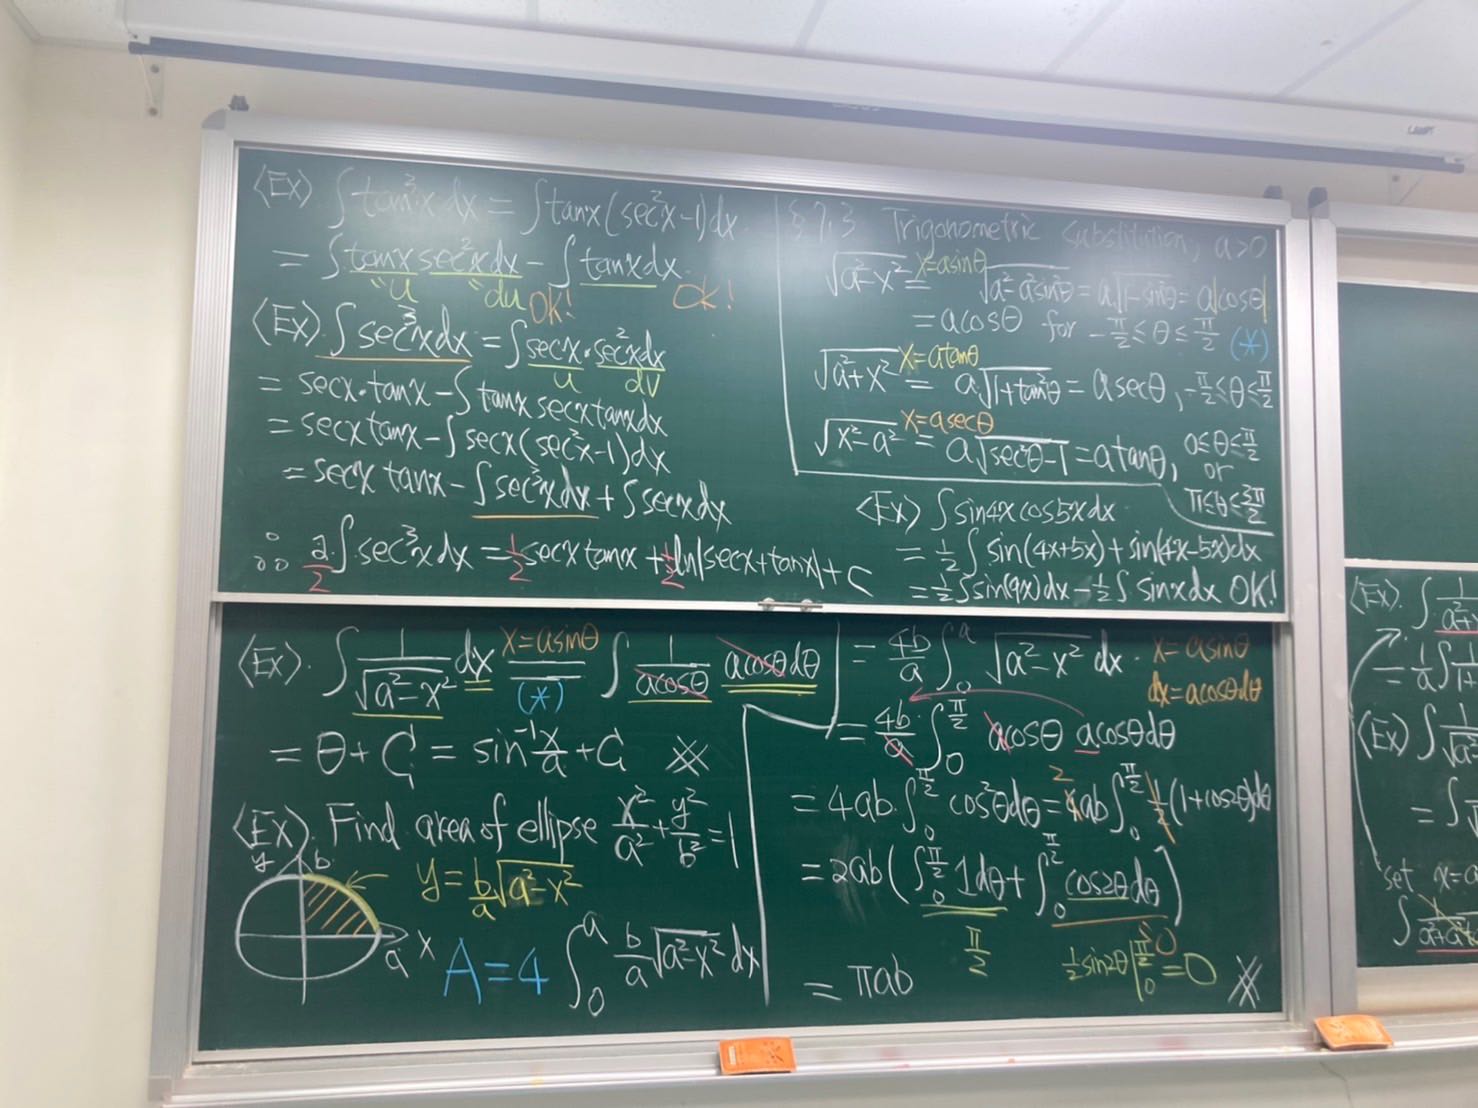 <Ex> ∫tan³x dx = ∫tanx(sec²x-1)dx
= ∫tanx sec²x dx - ∫tanx dx
"u "du OK! OK!
<Ex> ∫sec³x dx = ∫secx·sec²x dx
u dv
= secx·tanx - ∫tanx secx tanx dx
= secx tanx - ∫secx(sec²x-1)dx
= secx tanx - ∫sec³x dx + ∫secx dx
∴ 2/2 ∫sec³x dx = 1/2 secx tanx + 1/2 ln|secx+tanx| + C
§ 7.3 Trigonometric Substitution, a>0
√(a²-x²) x=asinθ = √(a²-a²sin²θ) = a√(1-sin²θ) = a|cosθ|
= acosθ for -π/2 ≤ θ ≤ π/2 (*)
√(a²+x²) x=atanθ = a√(1+tan²θ) = asecθ, -π/2 ≤ θ ≤ π/2
√(x²-a²) x=asecθ = a√(sec²θ-1) = atanθ, 0≤θ≤π/2
or
π≤θ≤3π/2
<Ex> ∫sin4x cos5x dx
= 1/2 ∫ sin(4x+5x) + sin(4x-5x)dx
= 1/2 ∫sin(9x)dx - 1/2 ∫ sinx dx OK!
<Ex>. ∫ 1/√(a²-x²) dx x=asinθ = (*) ∫ 1/(acosθ) acosθdθ
= θ + C = sin⁻¹ x/a + C ※
<Ex>. Find area of ellipse x²/a² + y²/b² = 1
y b
y = b/a √(a²-x²)
a x
A = 4 ∫₀ᵃ b/a √(a²-x²) dx
= 4b/a ∫₀ᵃ √(a²-x²) dx. x=asinθ
dx=acosθdθ
= 4b/a ∫₀^(π/2) acosθ acosθdθ
= 4ab ∫₀^(π/2) cos²θdθ = 2 4ab ∫₀^(π/2) 1/2 (1+cos2θ)dθ
= 2ab ( ∫₀^(π/2) 1dθ + ∫₀^(π/2) cos2θdθ )
π/2 1/2 sin2θ|₀^(π/2) = 0 0
= πab ※
<Ex>. ∫ 1/
= 1/a ∫ 1/
<Ex> ∫ 1/
= ∫
set x=
∫